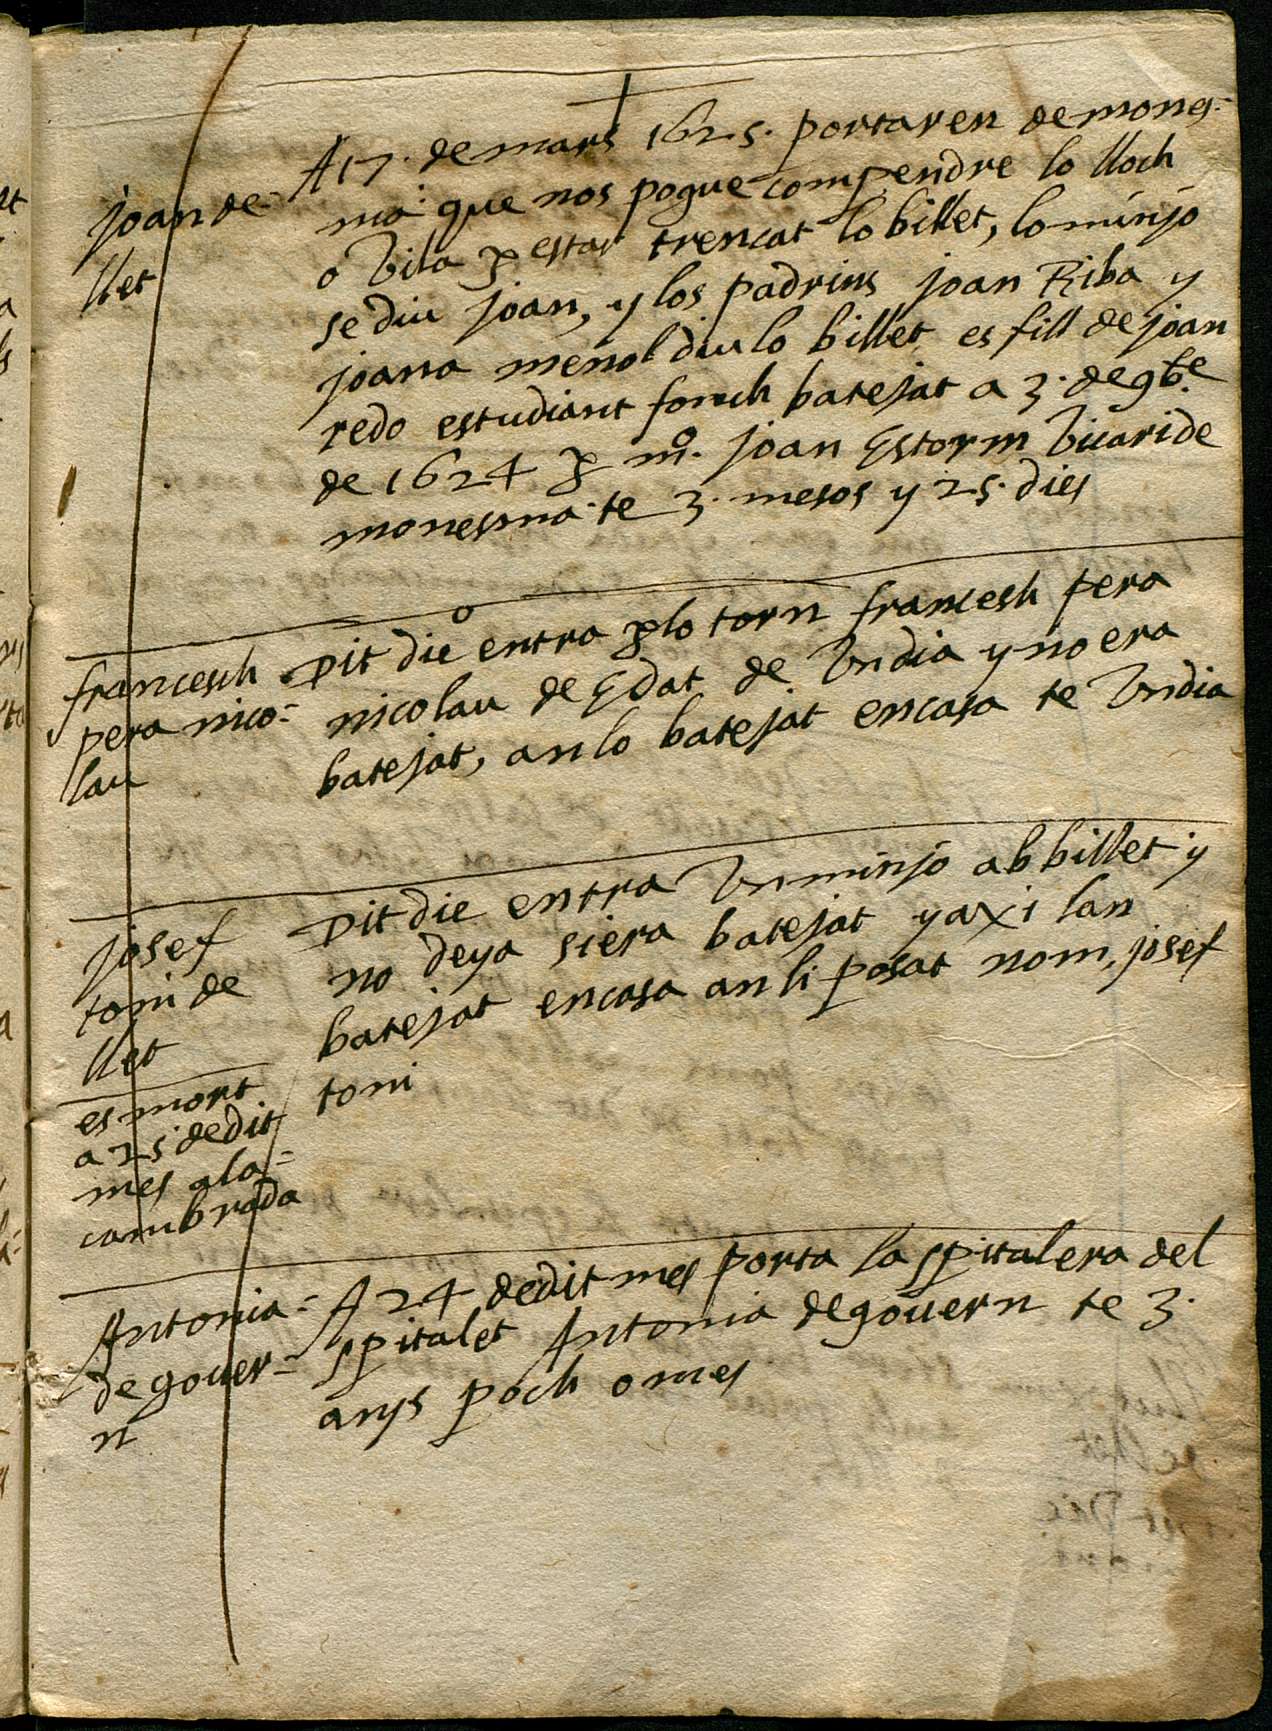 joan de-
llet
A 17. de mars 1625. portaren de mones-
ma que nos pogue compendre lo lloch
o vila p estar trencat lo billet, lo minjo
se diu joan, y los padrins joan Riba y
joana menol diu lo billet es fill de joan
redo estudiant fonch batejat a 3. de 9bre
de 1624 p mo. joan Estorm vicari de
monesma te 3. mesos y 25. dies
francesch
pera nico-
lau
Dit die entra p lo torn francesh pera
nicolau de Edat de un dia y no era
batejat, an lo batejat en casa te un dia
josef
toni de
llet
es mort
a 25 de dit
mes a la-
cambrada
Dit die entra un minjo ab billet y
no deya si era batejat y axi lan
batejat en casa an li posat nom, josef
toni
Antonia-
de gover-
n
A 24 de dit mes porta la spitalera del
spitalet Antonia de govern te 3.
anys poch o mes